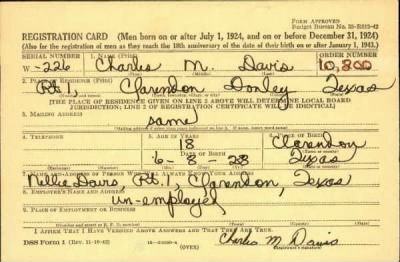 FORM APPROVED
REGISTRATION CARD (Men born on or after July 1, 1924, and on or before December 31, 1924)
(Also for the registration of men as they reach the 18th anniversary of the date of their birth on or after January 1, 1943.)
SERIAL NUMBER 1. NAME (Print) ORDER NUMBER
W-226 Charles M. Davis 10,800
(First) (Middle) (Last)
2. PLACE OF RESIDENCE (Print)
Rt 1, Clarendon Donley Texas
[THE PLACE OF RESIDENCE GIVEN ON LINE 2 ABOVE WILL DETERMINE LOCAL BOARD
JURISDICTION; LINE 2 OF REGISTRATION CERTIFICATE WILL BE IDENTICAL]
3. MAILING ADDRESS
same
4. TELEPHONE 5. AGE IN YEARS 6. PLACE OF BIRTH
18 Clarendon
DATE OF BIRTH
6-8-28 Texas
7. NAME AND ADDRESS OF PERSON WHO WILL ALWAYS KNOW YOUR ADDRESS
Nellie Davis, Rt. 1, Clarendon, Texas
8. EMPLOYER'S NAME AND ADDRESS
un-employed
9. PLACE OF EMPLOYMENT OR BUSINESS
I AFFIRM THAT I HAVE VERIFIED ABOVE ANSWERS AND THAT THEY ARE TRUE.
DSS Form 1 (Rev. 11-16-42) (OVER) Charles M. Davis
(Registrant's signature)